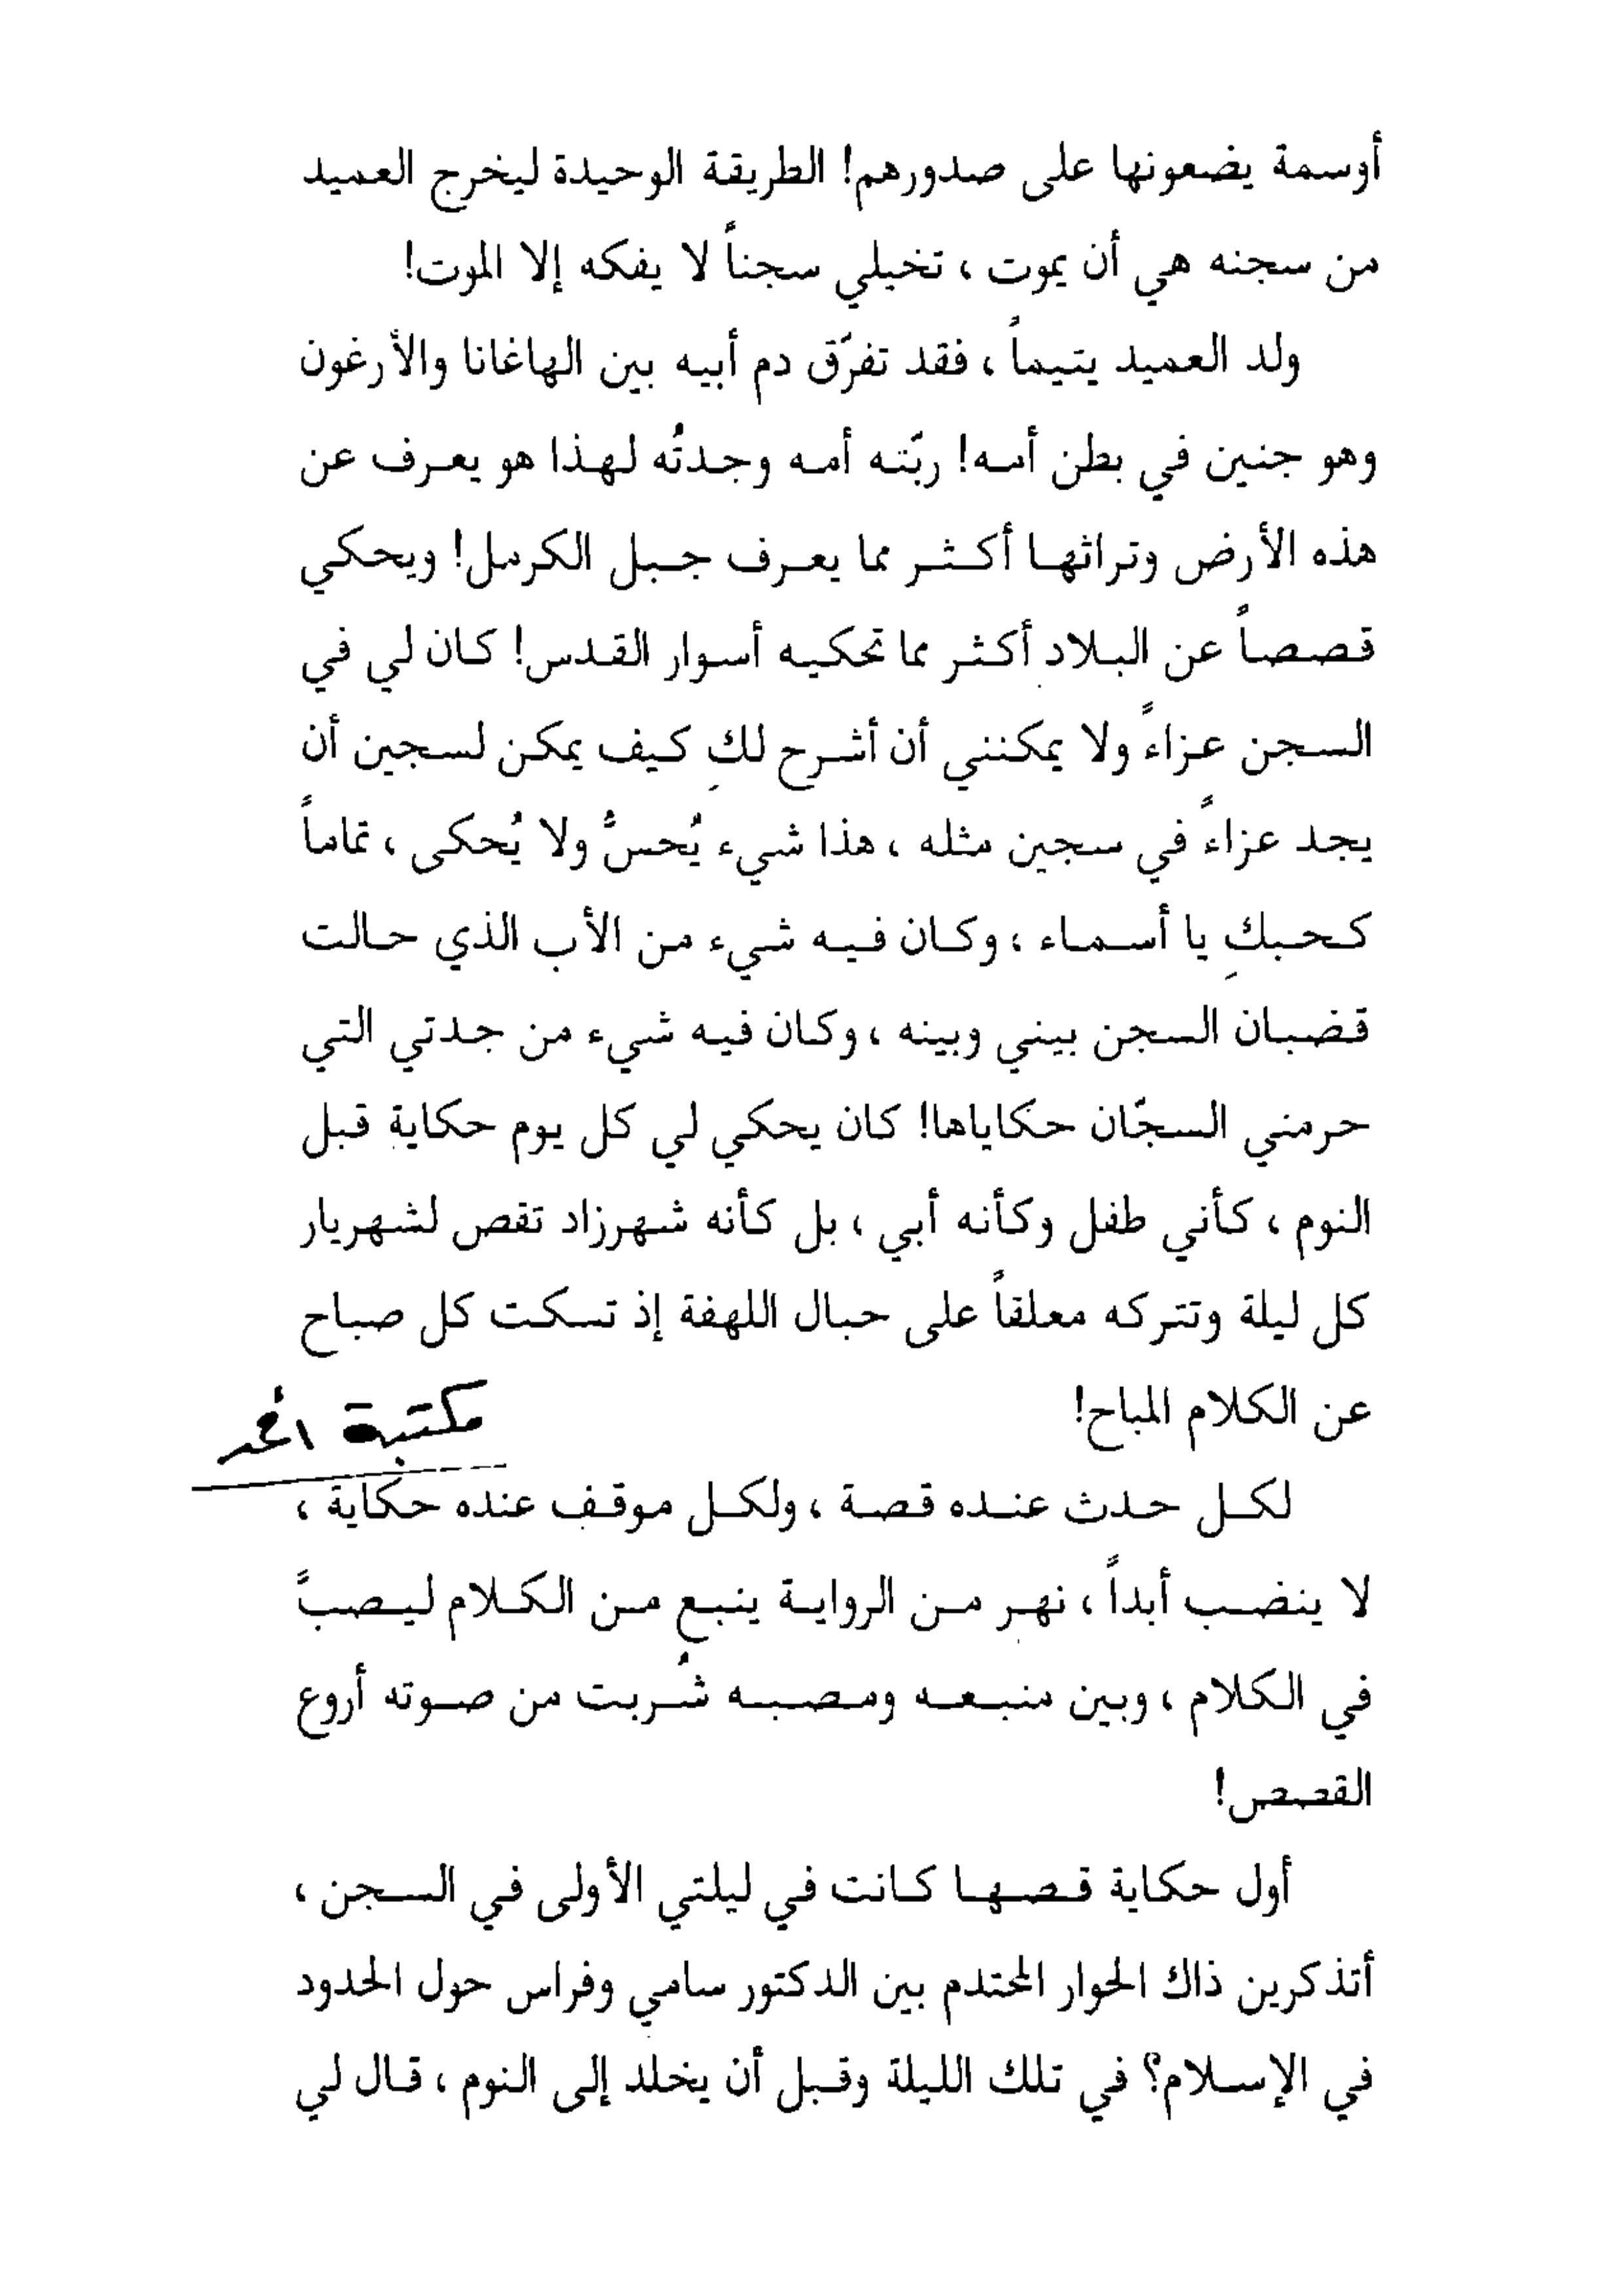 أوسمة يضعونها على صدورهم! الطريقة الوحيدة ليخرج العميد
من سجنه هي أن يموت ، تخيلي سجناً لا يفكه إلا الموت!
ولد العميد يتيماً ، فقد تفرّق دم أبيه بين الهاغانا والأرغون
وهو جنين في بطن أمه! ربّته أمه وجدتُه لهذا هو يعرف عن
هذه الأرض وتراثها أكثر مما يعرف جبل الكرمل! ويحكي
قصصاً عن البلاد أكثر مما تحكيه أسوار القدس! كان لي في
السجن عزاءً ولا يمكنني أن أشرح لكِ كيف يمكن لسجين أن
يجد عزاءً في سجين مثله ، هذا شيء يُحسُّ ولا يُحكى ، تماماً
كحبكِ يا أسماء ، وكان فيه شيء من الأب الذي حالت
قضبان السجن بيني وبينه ، وكان فيه شيء من جدتي التي
حرمني السجّان حكاياها! كان يحكي لي كل يوم حكاية قبل
النوم ، كأني طفل وكأنه أبي ، بل كأنه شهرزاد تقص لشهريار
كل ليلة وتتركه معلقاً على حبال اللهفة إذ تسكت كل صباح
عن الكلام المباح!
مكتبة
لكل حدث عنده قصة ، ولكل موقف عنده حكاية ،
لا ينضب أبداً ، نهر من الرواية ينبع من الكلام ليصبّ
في الكلام ، وبين منبعه ومصبه شُربت من صوته أروع
القصص!
أول حكاية قصها كانت في ليلتي الأولى في السجن ،
أتذكرين ذاك الحوار المحتدم بين الدكتور سامي وفراس حول الحدود
في الإسلام؟ في تلك الليلة وقبل أن يخلد إلى النوم ، قال لي